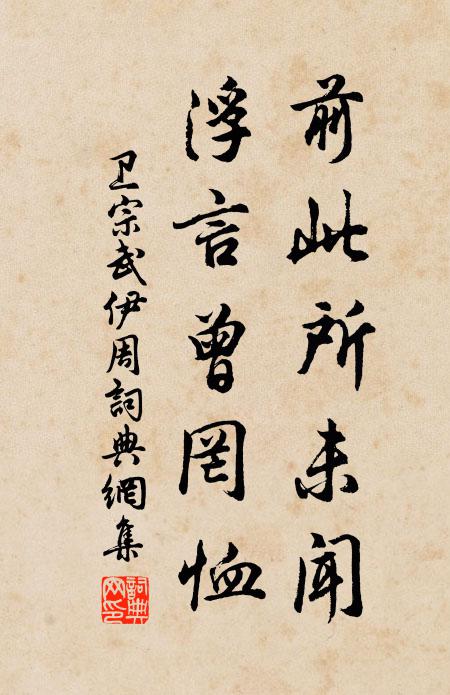 前此所未闻
浮言曾罔恤
卫宗武伊周詞典網集
詞典
网印